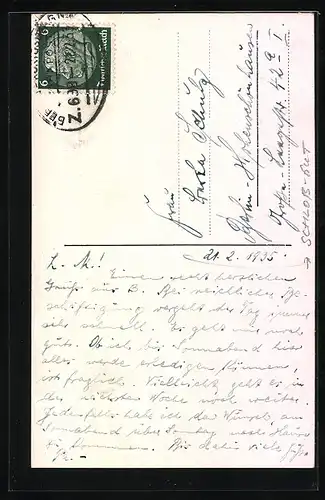 6 Deutsches Reich 6
Frau
Schulz
Berlin-Hohenschönhausen
Große-Leegestr. 42a I
→ SCHLOß-GUT
21.2.1935.
L. M.!
Einen recht herzlichen
Gruß aus B. Bei reichlicher Be-
schäftigung vergeht der Tag immer
sehr schnell. Es geht mir noch
gut. Ob ich bis Sonnabend hier
alles werde erledigen können,
ist fraglich. Vielleicht geht es in
der nächsten Woche noch weiter.
Jedenfalls habe ich die Absicht, am
Sonnabend über Sonntag nach Hause
zu kommen. Bis dahin viele